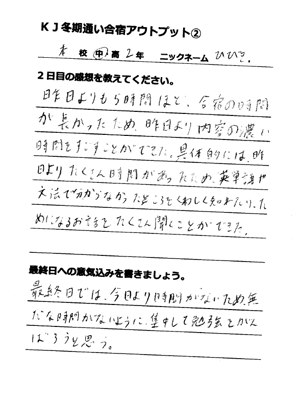 KJ冬期通い合宿アウトプット②
本 校 中・高 2年 ニックネーム ひびき。
2日目の感想を教えてください。
昨日よりも5時間ほど、合宿の時間
が長かったため、昨日より内容の濃い
時間をすごすことができた。具体的には、昨日
よりたくさん時間があったため、英単語や
文法で分からなかったところをくわしく知れたり、た
めになるお話をたくさん聞くことができた。
最終日への意気込みを書きましょう。
最終日では、今日より時間がないため、無
だな時間がないように、集中して勉強をがん
ばろうと思う。